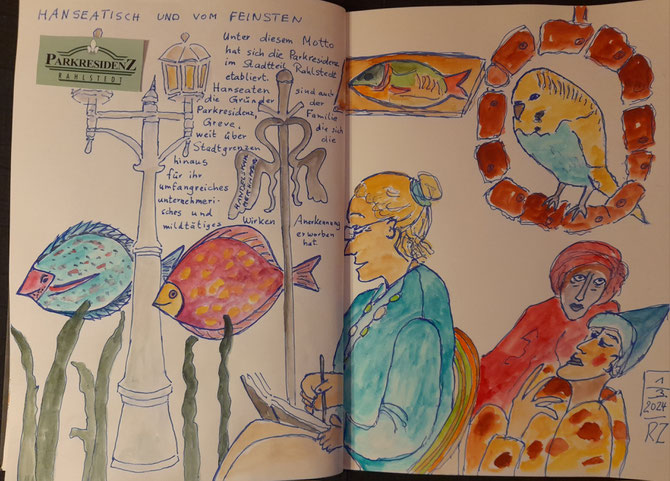 HANSEATISCH UND VOM FEINSTEN
PARKRESIDENZ
RAHLSTEDT
Unter diesem Motto
hat sich die Parkresidenz
im Stadtteil Rahlstedt
etabliert.
Hanseaten sind auch
die Gründer der
Parkresidenz, Familie
Greve, die sich
weit über die
Stadtgrenzen
hinaus
für ihr
umfangreiches
unternehmeri-
sches und
mildtätiges Wirken Anerkennung
erworben
hat.
1
3.
2024
RZ